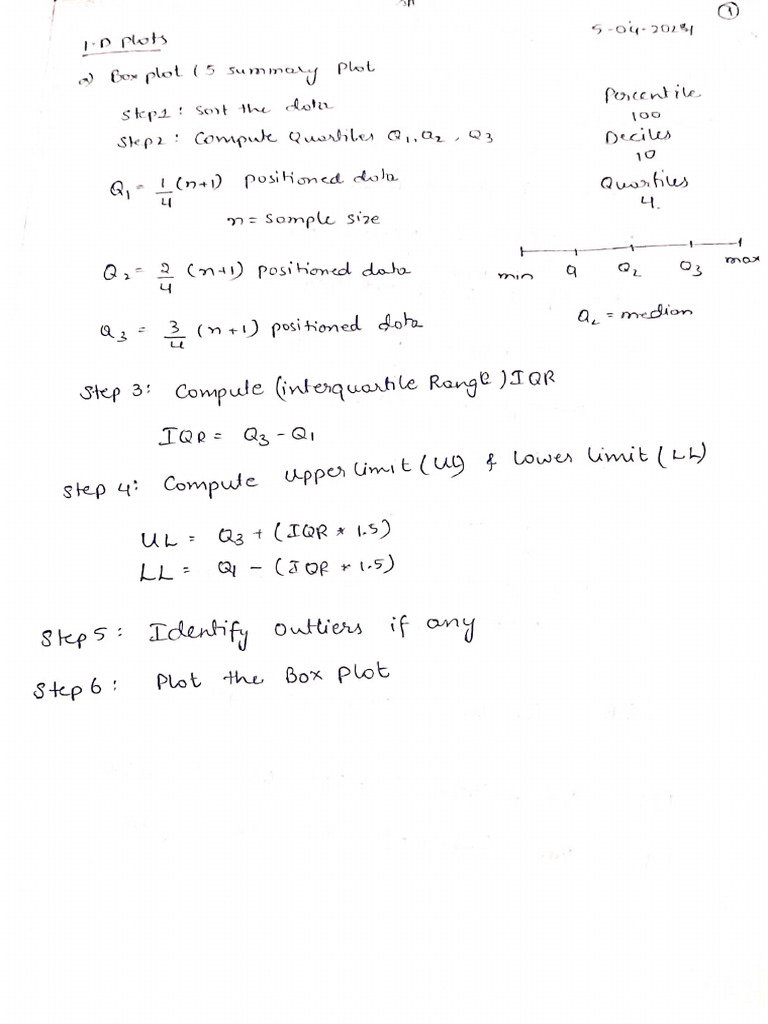 1
5-04-2024
1-D plots
a) Box plot ( 5 summary plot
Step1 : Sort the data
Step2 : Compute Quartiles Q1, Q2, Q3
Percentile
100
Deciles
10
Quartiles
4.
Q1 = 1/4 (n+1) positioned data
n = sample size
Q2 = 2/4 (n+1) positioned data
min Q Q2 Q3 max
Q3 = 3/4 (n+1) positioned data
Q2 = median
Step 3: Compute (interquartile Range) IQR
IQR = Q3 - Q1
Step 4: Compute upper limit (UL) & lower limit (LL)
UL = Q3 + (IQR * 1.5)
LL = Q1 - (IQR * 1.5)
Step 5 : Identify outliers if any
Step 6 : Plot the Box plot